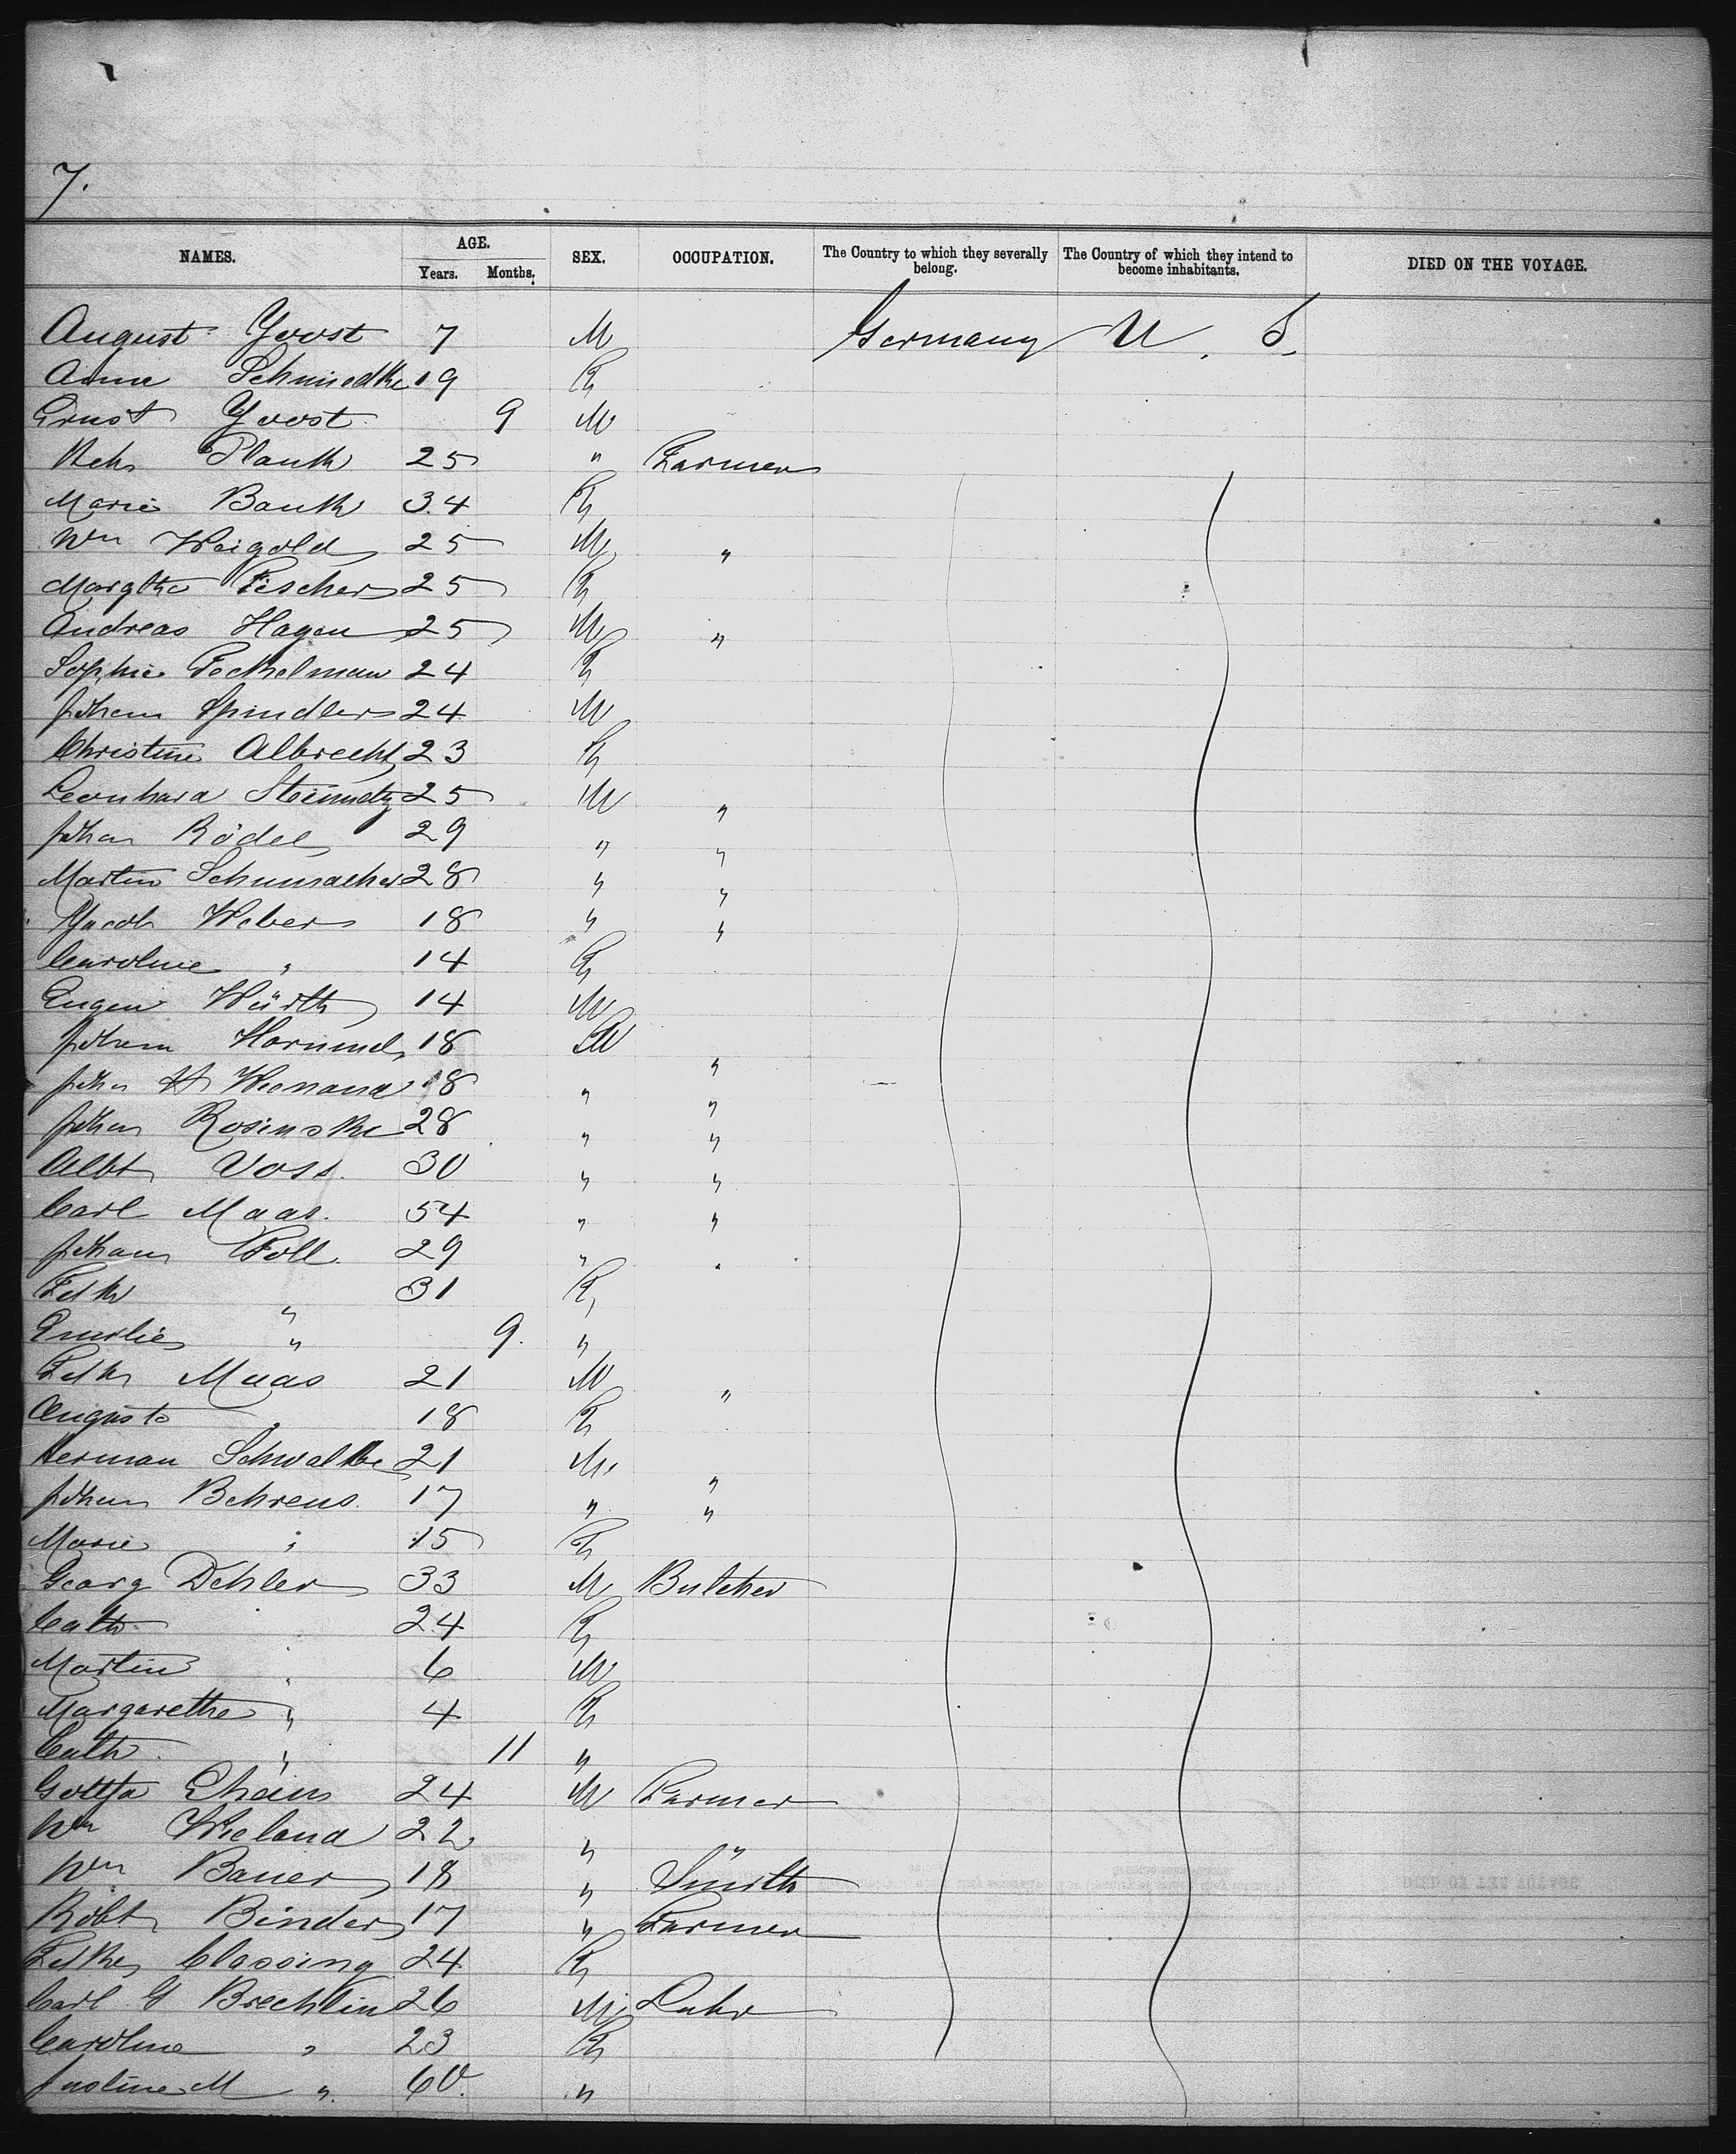 7.
NAMES. AGE. SEX. OCCUPATION. The Country to which they severally belong. The Country of which they intend to become inhabitants. DIED ON THE VOYAGE.
Years. Months.
August Yoost 7 M Germany U. S.
Anna Schmiedtke 19 F
Ernst Yoost 9 M
Plauth 25 " Farmer
Marie Bauth 34 F
Wm Weigold 25 M "
Margthe Fischer 25 F
Andreas Hagen 25 M "
Sophie Feckelman 24 F
Johann Spindler 24 M
Christine Albrecht 23 F
Leonhard Steinmetz 25 M "
Johan Rödel 29 " "
Martin Schumacher 28 " "
Yacob Weber 18 " "
Caroline " 14 F
Eugen Würth 14 M
Johann 18 M "
Johan H Wienand 18 " "
Johan Rosinske 28 " "
Albt Voss 30 " "
Carl Maas. 54 " "
Johann Foll. 29 " "
" 31 F
Emilie " 9. "
Maas 21 M "
Auguste " 18 F
Herman Schwalbe 21 M "
Johan Behrens 17 " "
Marie " 15 F
Georg Dehler 33 M Butcher
Cath " 24 F
Martin " 6 M
Margarethe " 4 F
Cath. " 11 "
24 M Farmer
Wm Wieland 22 " "
Wm Bauer 18 " Smith
Robt Binder 17 " Farmer
Classing 24 F
Carl G Brechlin 26 M Labr
Caroline " 23 F
Justine M " 60. "